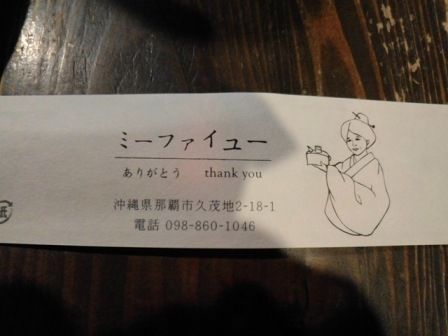 ミーファイユー
ありがとう thank you
沖縄県那覇市久茂地2-18-1
電話 098-860-1046